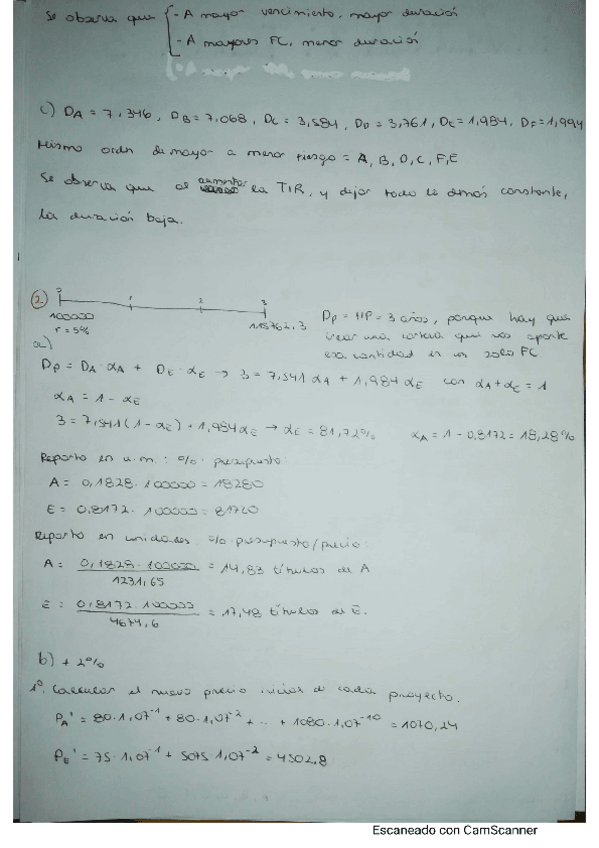 Se observa que { - A mayor vencimiento, mayor duración
- A mayores FC, menor duración
c) DA = 7,346, DB = 7,068, DC = 3,584, DD = 3,761, DE = 1,984, DF = 1,994
Mismo orden de mayor a menor riesgo = A, B, D, C, F, E
Se observa que al aumentar la TIR, y dejar todo lo demás constante,
la duración baja.
2) 0 1 2 3
100000 115762,3
r = 5%
Dp = HP = 3 años, porque hay que
crear una cartera que nos aporte
esa cantidad en un solo FC
a)
Dp = DA · αA + DE · αE → 3 = 7,541 αA + 1,984 αE con αA + αE = 1
αA = 1 - αE
3 = 7,541(1 - αE) + 1,984 αE → αE = 81,72% αA = 1 - 0,8172 = 18,28%
Reparto en u.m.: %· presupuesto:
A = 0,1828 · 100000 = 18280
E = 0,8172 · 100000 = 81720
Reparto en unidades %·presupuesto/precio:
A = 0,1828 · 100000 / 1231,65 = 14,83 títulos de A
E = 0,8172 · 100000 / 4674,6 = 17,48 títulos de E.
b) + 2%
1º. Calcular el nuevo precio inicial de cada proyecto.
PA' = 80·1,07⁻¹ + 80·1,07⁻² + ... + 1080·1,07⁻¹⁰ = 1070,24
PE' = 75·1,07⁻¹ + 5075·1,07⁻² = 4502,8
Escaneado con CamScanner